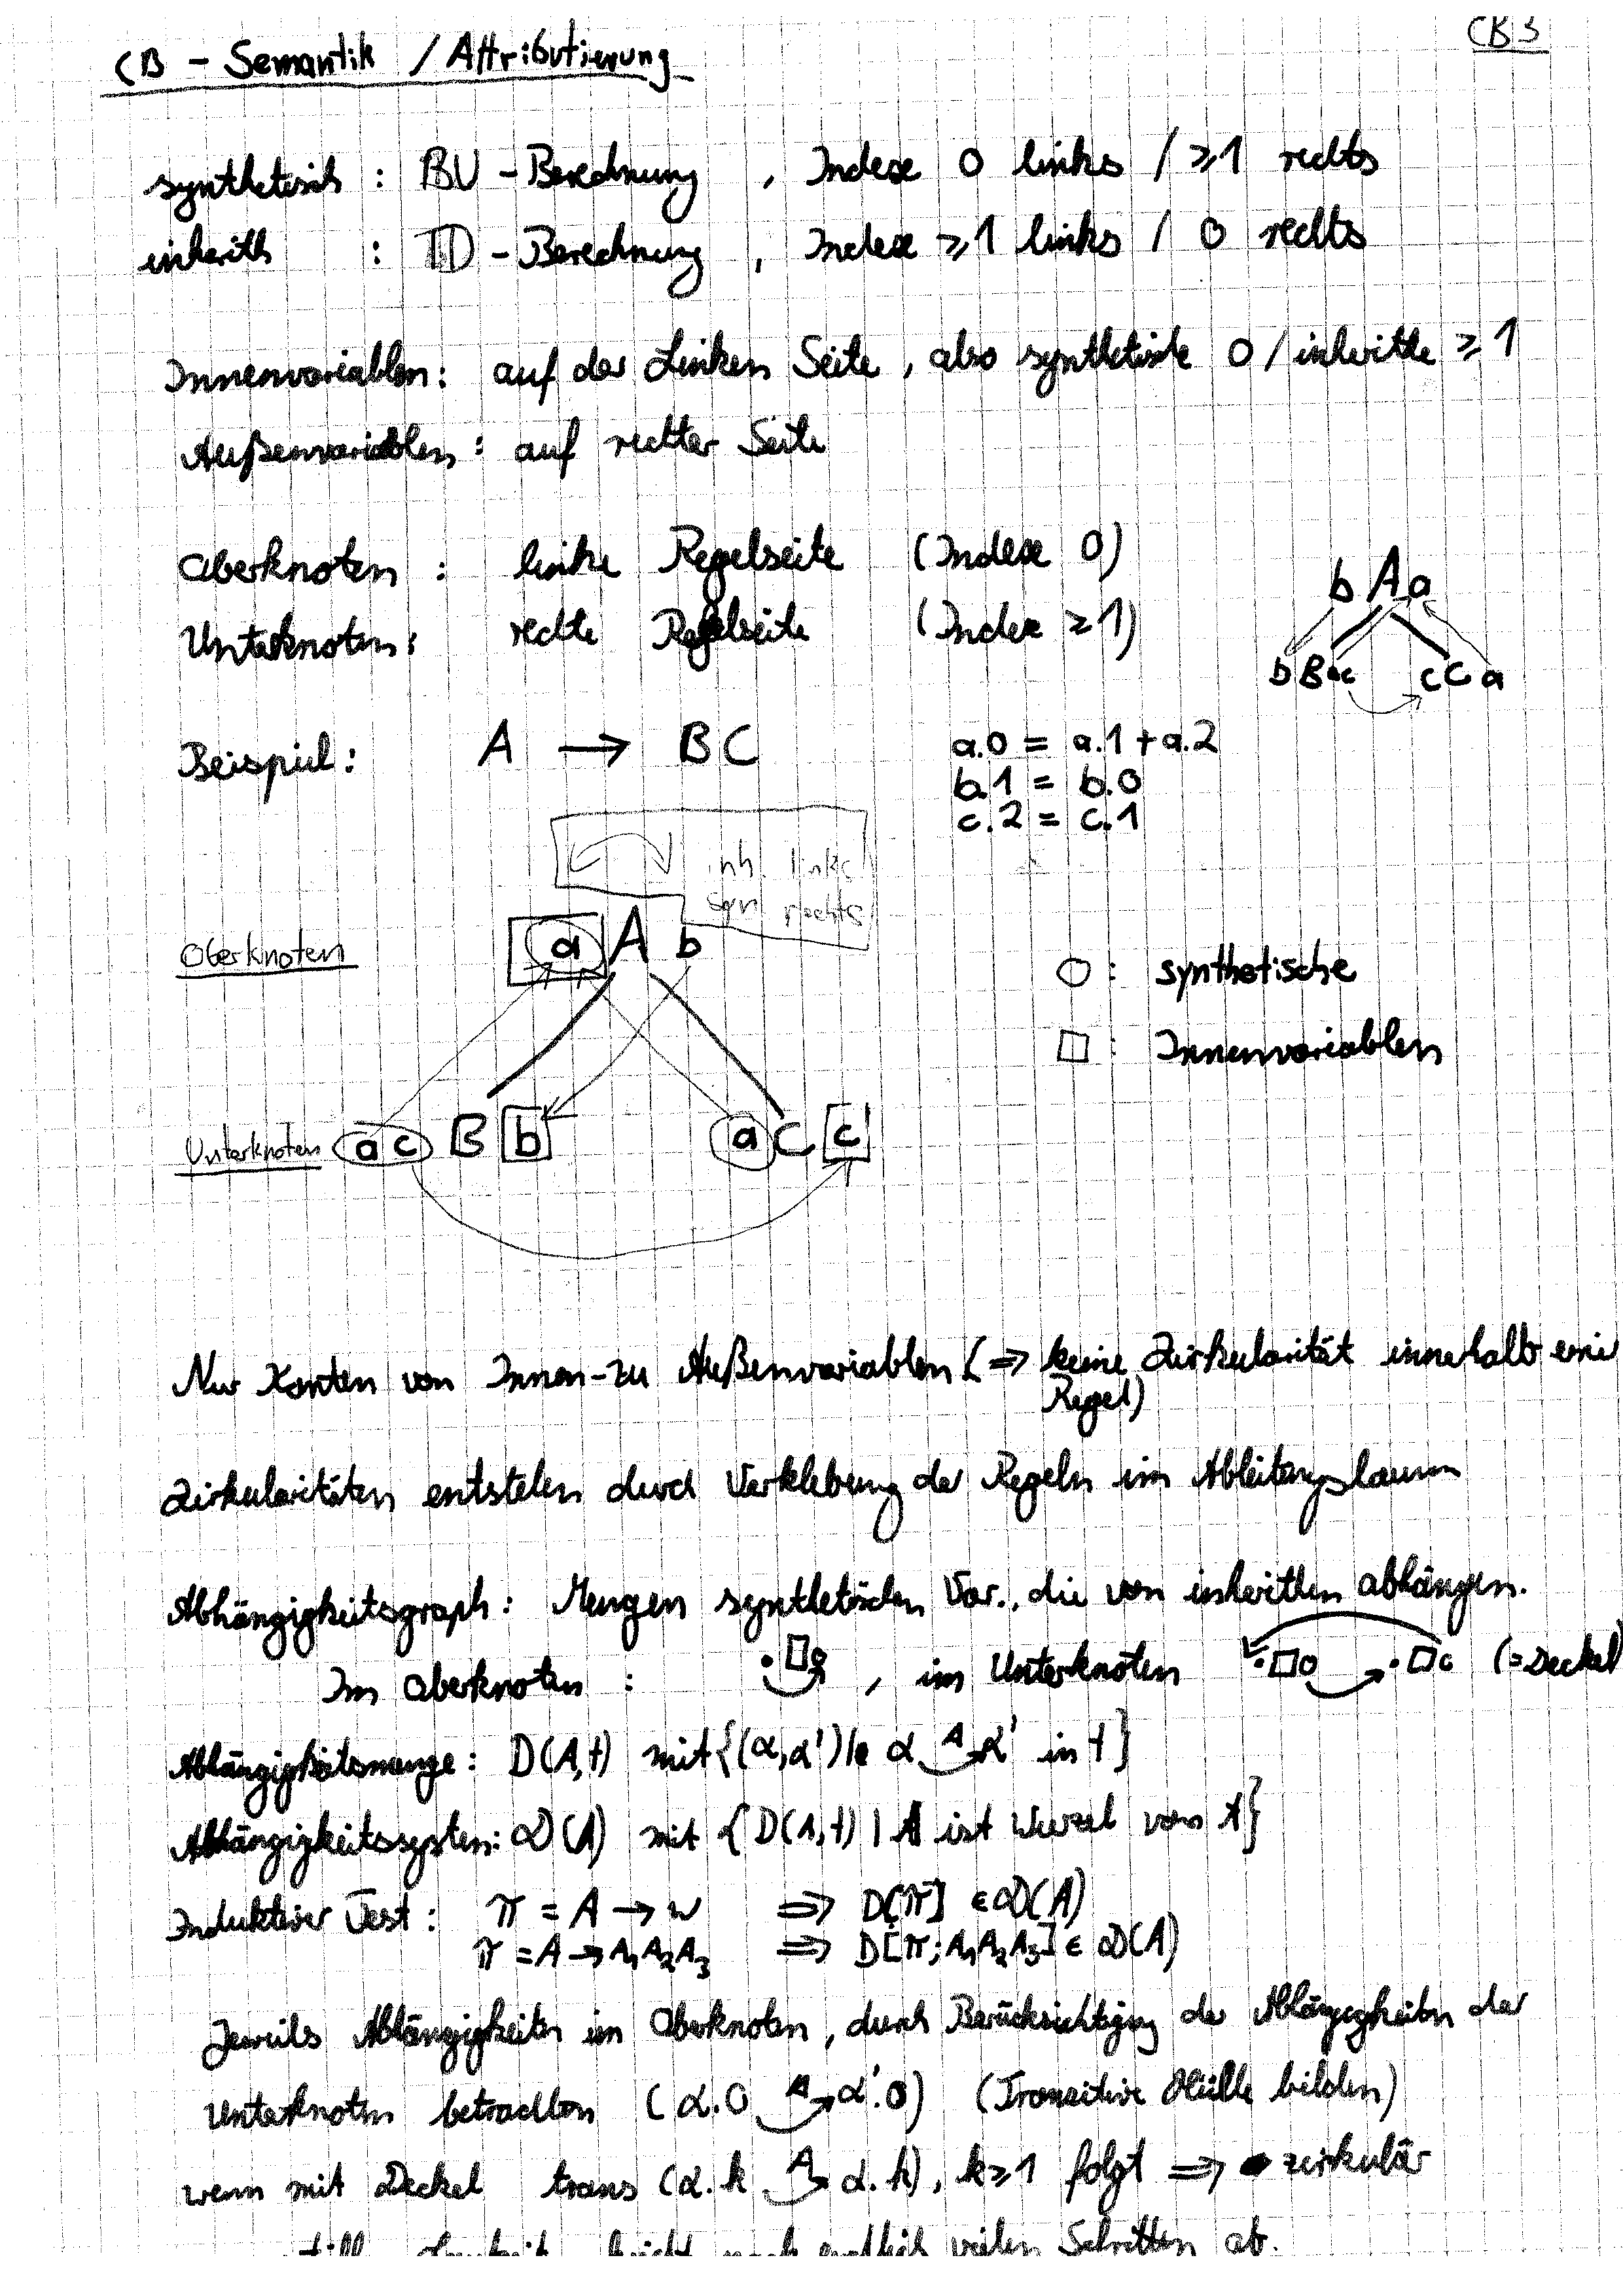 CB 3
CB - Semantik / Attributierung
synthetisch : BU - Berechnung , Indexe 0 links / ≥1 rechts
inherith : TD - Berechnung , Indexe ≥1 links / 0 rechts
Innenvariablen: auf der Linken Seite, also synthetische 0 / inherithe ≥1
Außenvariablen : auf rechter Seite
Oberknoten : linke Regelseite (Indexe 0)
Unterknoten : rechte Regelseite (Indexe ≥1)
b A a
b B a c c C a
Beispiel : A → B C
a.0 = a.1 + a.2
b.1 = b.0
c.2 = c.1
inh. links
syn rechts
Oberknoten a A b
○ : synthetische
□ : Innenvariablen
Unterknoten a c B b a C c
Nur Kanten von Innen- zu Außenvariablen (⇒ keine Zirkularität innerhalb
Regel)
Zirkularitäten entstehen durch Verklebung der Regeln im Ableitungsbaum
Abhängigkeitsgraph : Mengen synthetischen Var., die von inherithen abhängen.
Im Oberknoten : , im Unterknoten (=Deckel)
Abhängigkeitsmenge : D(A,t) mit {(α,α')| α A α' in t}
Abhängigkeitssystem: D(A) mit {D(A,t) | A ist Wurzel von t}
Induktiver Test : π = A → w ⇒ D[π] ∈ D(A)
π = A → A₁A₂A₃ ⇒ D[π; A₁A₂A₃] ∈ D(A)
Jeweils Abhängigkeiten im Oberknoten, durch Berücksichtigung der Abhängigkeiten der
Unterknoten betrachten (α.0 A α'.0) (Transitive Hülle bilden)
wenn mit Deckel trans (α.k A α.k), k≥1 folgt ⇒ zirkulär
nach endlich vielen Schritten ab.